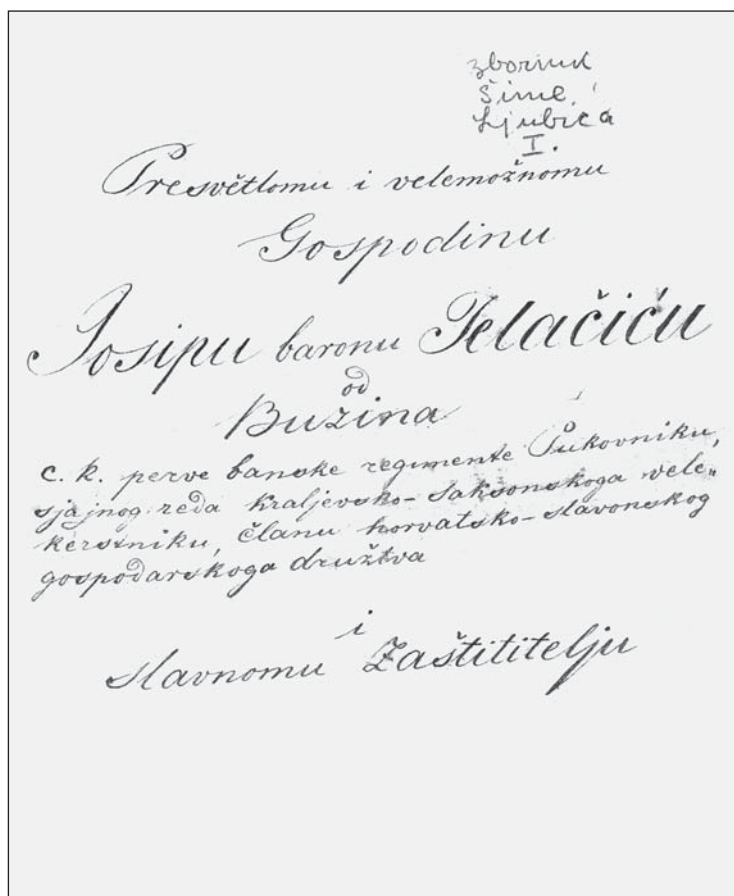 zbornik
Šime
Ljubića
I.
Presvětlomu i velemožnomu
Gospodinu
Josipu baronu Jelačiću
od
Buzina
c. k. perve banske regimente Pukovniku,
sjajnog reda kraljevsko-saksonskoga vele„
kerstniku, članu horvatsko-slavonskog
gospodarskoga družtva
i
slavnomu Zaštititelju